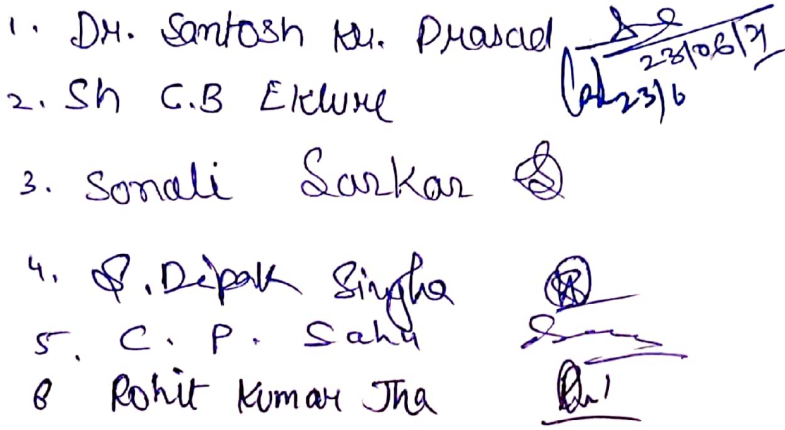 1. Dr. Santosh Kr. Prasad 23/06/21
2. Sh C.B Ekture 23/6
3. Sonali Sarkar
4. S. Dipak Singha
5. C. P. Sahu
6 Rohit Kumar Jha